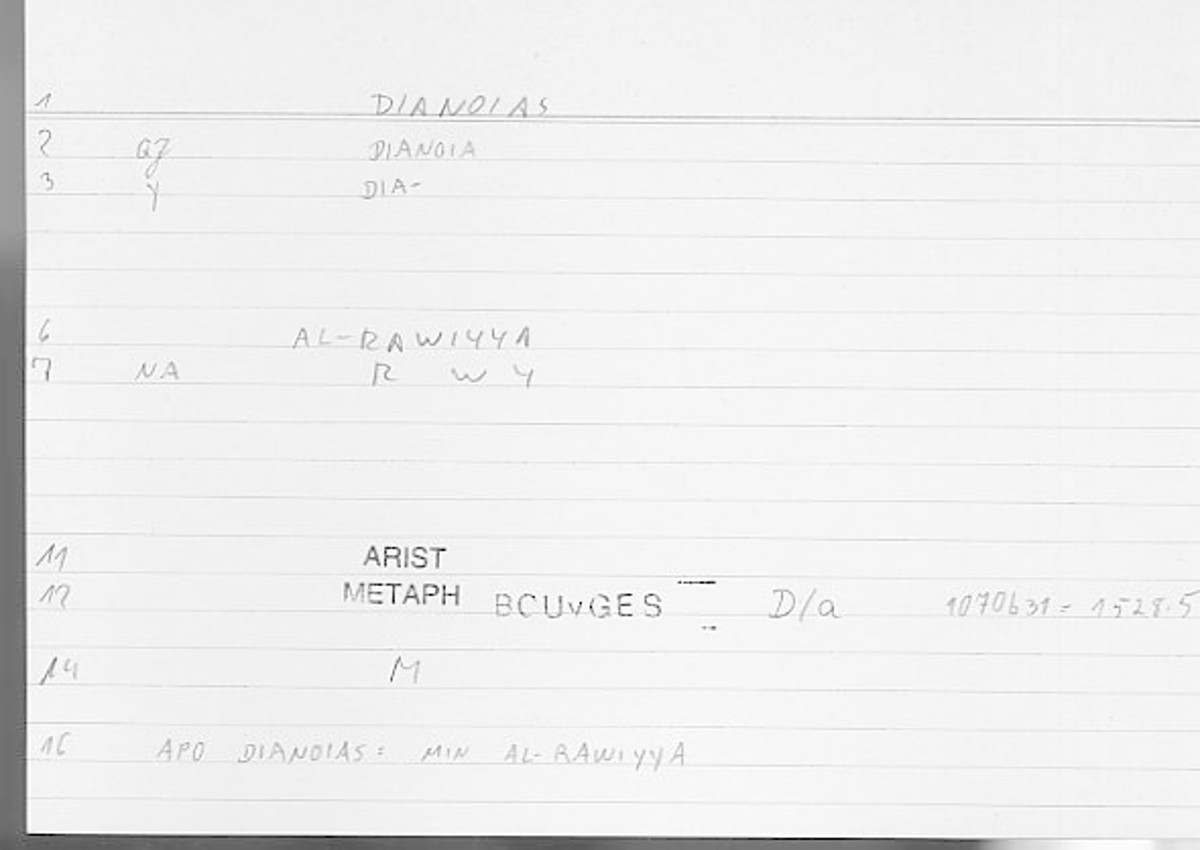 1 DIANOIAS
2 GJ DIANOIA
3 Y DIA-
6 AL-RAWIYYA
7 NA R W Y
11 ARIST
12 METAPH BCUvGES D/a 1070b31 = 1528.5
14 M
16 APO DIANOIAS: MIN AL-RAWIYYA